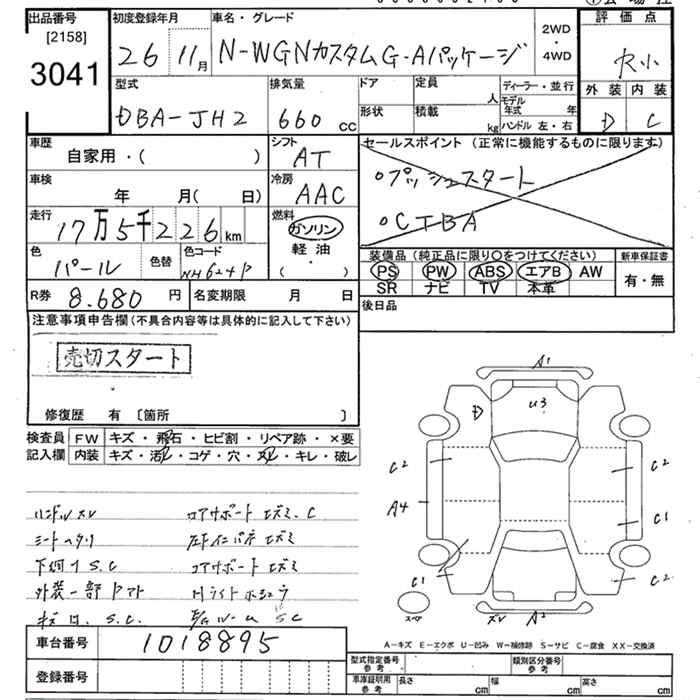 出品番号
[2158]
3041
初度登録年月
26 11月
車名・グレード
N-WGNカスタムG・Aパッケージ
2WD
・
4WD
評価点
外装 内装
D C
型式
DBA-JH2
排気量
660 cc
ドア
形状
定員 人
積載 kg
ディーラー・並行
モデル年式 年
ハンドル 左・右
車歴
自家用・( )
シフト
AT
セールスポイント (正常に機能するものに限ります)
○プッシュスタート
○CTBA
車検
年 月( 日)
冷房
AAC
走行
17万5千226km
燃料
ガソリン
軽油
( ・ )
色
パール
色替
色コード
NH624P
装備品(純正品に限り○をつけてください)
PS PW ABS エアB AW
SR ナビ TV 本革
新車保証書
有・無
R券 8.680円
名変期限 月 日
後日品
注意事項申告欄(不具合内容等は具体的に記入して下さい)
売切スタート
修復歴 有 [箇所 ]
検査員
記入欄
FW キズ・飛石・ヒビ割・リペア跡・×要
内装 キズ・汚れ・コゲ・穴・スレ・キレ・破レ
ハンドルスレ
シートヘタリ
下廻りS.C
外装一部
コアサポート S.C
A1
D
U3
C2
C2
A4
C1
C1
C2
スペア
スレ
A2
車台番号 1018895
登録番号
A-キズ E-エクボ U-凹み W-補修跡 S-サビ C-腐食 XX-交換済
型式指定番号
参考
類別区分番号
参考
車庫証明用
参考
長さ cm
幅 cm
高さ cm